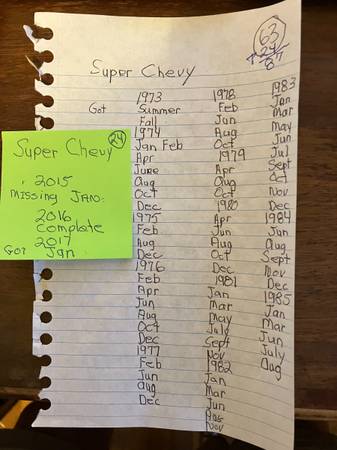 63
+24
87
Super Chevy
Got
1973
Summer
Fall
1974
Jan Feb
Apr
June
Aug
Oct
Dec
1975
Jun
Aug
Dec
1976
Feb
Apr
Jun
Aug
Oct
Dec
1977
Feb
Jun
Aug
Dec
1978
Feb
Jun
Aug
Oct
1979
Apr
Aug
Oct
1980
Apr
Jun
Oct
Dec
1981
Jan
Mar
May
July
Sept
Nov
1982
Jan
Mar
Jun
Aug
Nov
1983
Jan
Mar
May
Jun
Jul
Sept
Oct
Nov
Dec
1984
Jun
Aug
Sept
Nov
Dec
1985
Jan
Mar
Jun
July
Aug
24
Super Chevy
2015
Missing Jan:
2016
Complate
2017
Got Jan